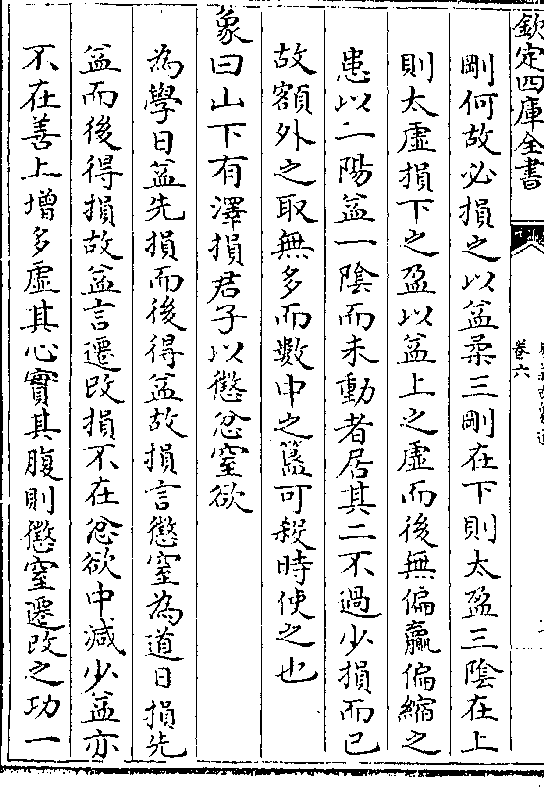 欽定四庫全書
卷六
剛何故必損之以益柔三剛在下則太盈三陰在上
則太虛損下之盈以益上之虛而後無偏贏偏縮之
患以二陽益一陰而未動者居其二不過少損而已
故額外之取無多而數中之簋可殺時使之也
象曰山下有澤損君子以懲忿窒欲
為學日益先損而後得益故損言懲窒為道日損先
益而後得損故益言遷改損不在忿欲中減少益亦
不在善上增多虛其心實其腹則懲窒遷改之功一